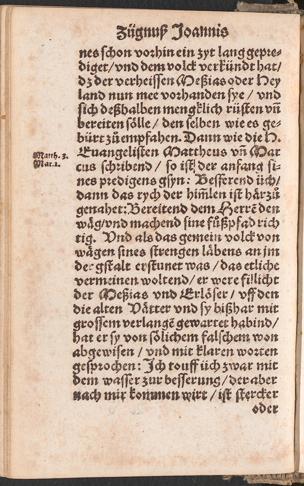 Zügnuß Joannis
nes schon vorhin ein zyt lang gepre-
diget/ vnd dem volck verkündt hat/
dz der verheissen Meßias oder Hey
land nun mee vorhanden sye / vnd
sich deßhalben mengklich rüsten vñ
bereiten sölle / den selben wie es ge-
bürt zů empfahen. Dann wie die H.
Euangelisten Mattheus vñ Mar
Matth. 3.
Mar. 1.
cus schribend / so ist der anfang si-
nes predigens gsyn: Besserend üch/
dann das rych der him̃len ist härzů
genahet: Bereitend dem Herrē den
wäg/ vnd machend sine fůßpfad rich
tig. Vnd als das gemein volck von
wägen sines strengen läbens an jm
dergstalt erstunet was / das etliche
vermeinen woltend/ er were fillicht
der Meßias vnd Erlöser / vff den
die alten Vätter vnd sy bißhar mit
grossem verlangē gewartet habind/
hat er sy von sölichem falschem won
abgewisen / vnd mit klaren worten
gesprochen: Ich touff üch zwar mit
dem wasser zur besserung/ der aber
nach mir kommen wirt / ist stercker
oder